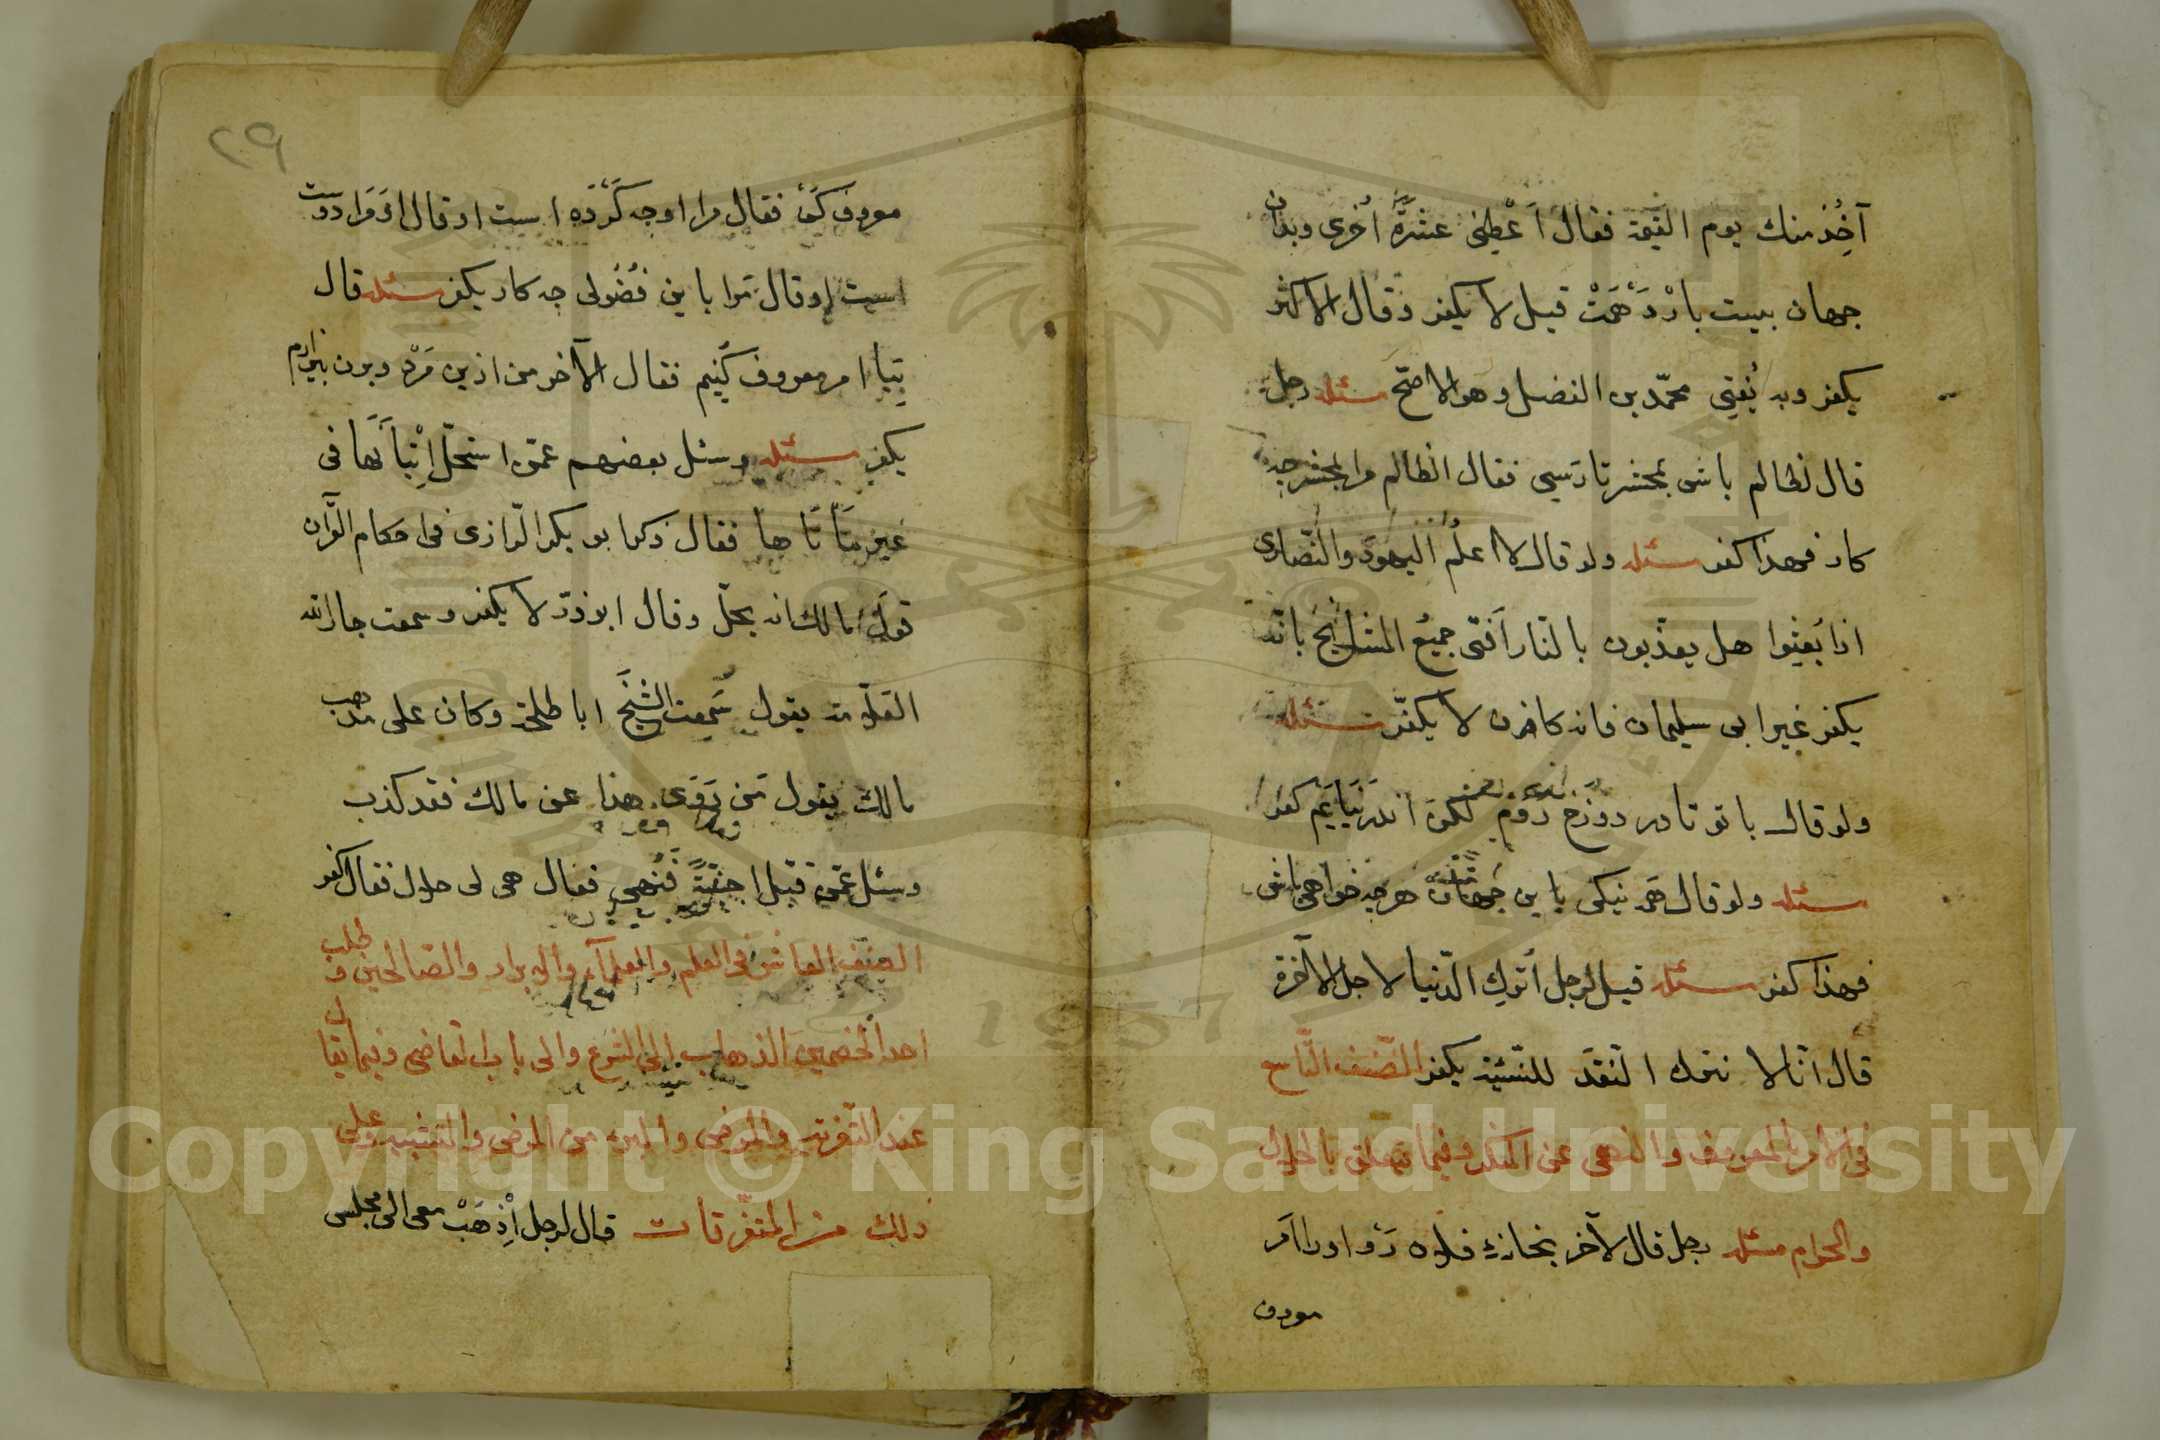 آخُذ منك يوم القيمة فقال اَعْطِنى عشرةً اُخرى وبدان
جهان بيست بازْدَهَمَتْ قيل لا يكفر وقال الاكثر
يكفر وبه يُفتى محمّد بن الفضل وهو الاصحّ مسئله رجل
قال لظالم باش بمحشر تا رسى فقال الظالم مرا بمحشر چه
كار فهذا كفر مسئله ولو قال لا اعلمُ اليهود والنّصارى
اذا بُعثِوا هل يعذّبون بالنّار اَفتى جميعُ المشايخ بانّه
يكفر غير ابى سليمان فانه كافرن لا يكفّر مسئله
ولو قال با تو تا در دوزخ رَوَم لكن اندر نيايَم كفر
مسئله ولو قال همه نيكى باين جهان هر چه خواهى باش
فهذا كفر مسئله قيل لرجل اُترك الدّنيا لاجل الآخرة
قال انا لا نترك النقد للنّسئية يكفر الصّنف التّاسع
فى الامر بالمعروف والنهى عن المنكر وفيما يتعلق بالحلال
والحرام مسئله رجل قال لآخر بخانۀ فلان رَو او را امر
معروف
٢٩
معروف كن فقال مرا او چه كرده است او قال او مرا دوست
است او قال مرا باين فُضُولى چه كار يكفر مسئله قال
بيا امر معروف كنيم فقال الآخر من ازين مرد وبرون بيزارم
يكفر مسئله وسئل بعضهم عمّن استحلّ اِتْيانَها فى
غير مَأتَاها فقال ذكر ابو بكر الرّازى فى احكام القرآن
قول مالك انه يحلّ وقال ابو ذرّ لا يكفر وسمعت جار الله
العَلّامة يقول سَمِعت الشيخَ ابا طلحة وكان على مذهب
مالك يقول مَن رَوَى هذا عن مالك فقد كذب
وسئل عمّن قبّل اجنبيّةً فنُهِى فقال هى لى حلال فقال كفر
الصنف العاشر فى العلم والعلمآء والابرار والصالحين وطلب
احد الخصمين الذهاب الى الشرع والى باب القاضى وفيما يقال
عند التعزية والمرضى والبرء من المرض والتشبيه وعلى
ذلك من المتفرّقات قال لرجل اِذْهَبْ معى الى مجلس
Copyright © King Saud University
1957